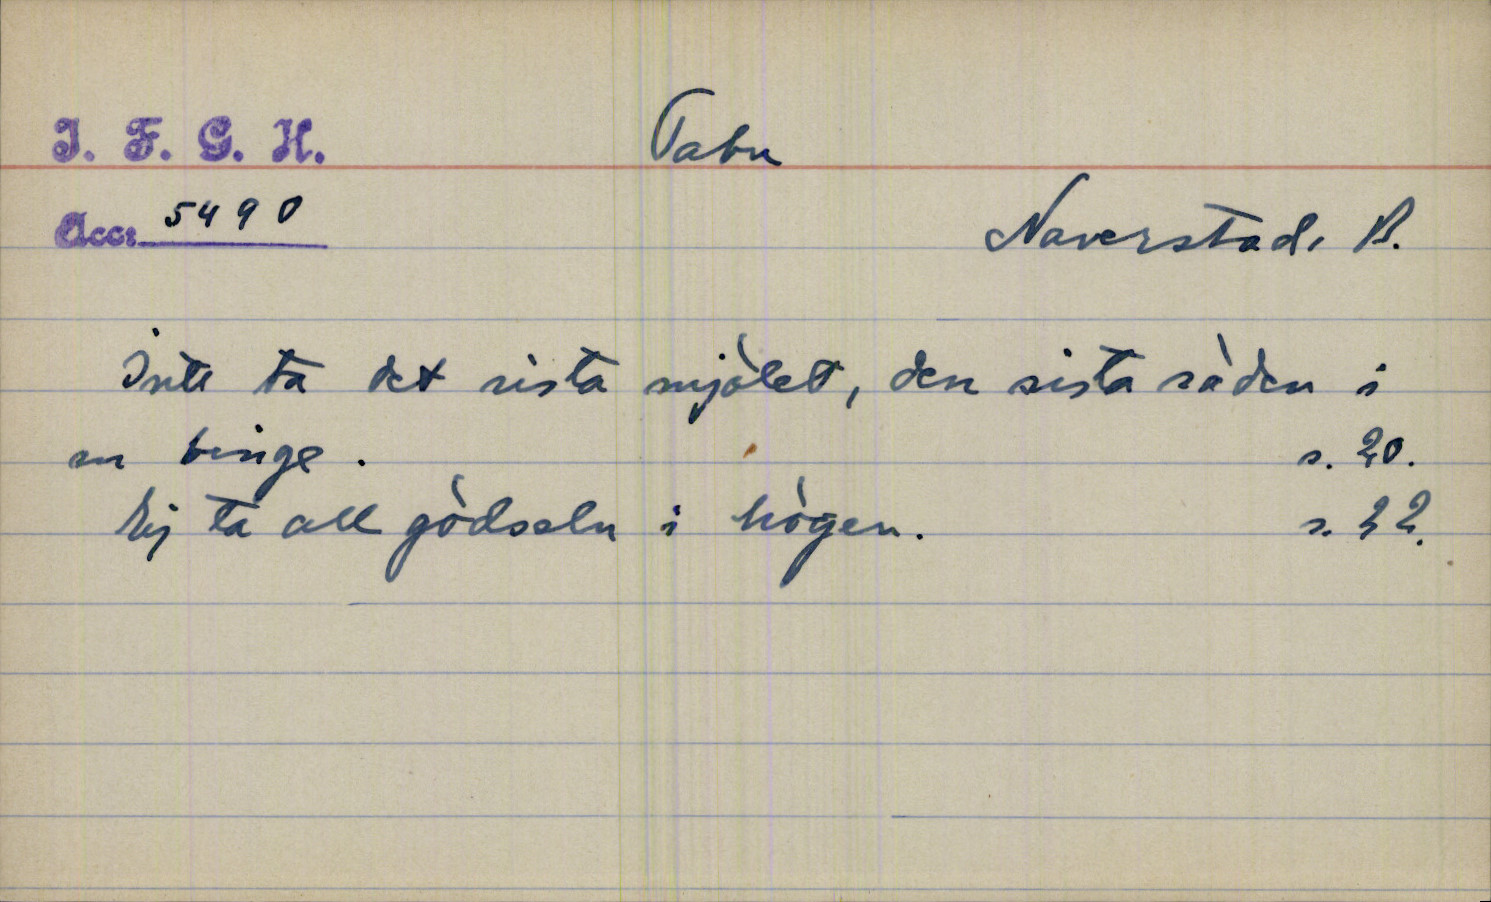 I. F. G. H.
Tabu
Acc: 5490
Naverstad, B.
Inte ta det sista mjölet, den sista säden i
en binge. s. 20.
Ej ta all gödseln i högen. s. 22.